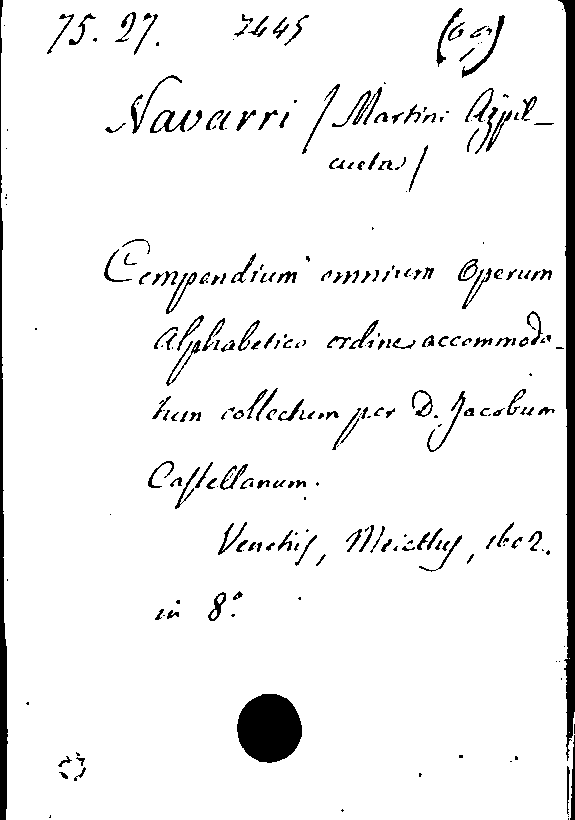 75. 27. 7445 (69)
Navarri / Martini Azpil-
cueta /
Compendium omnium Operum
Alphabetico ordine accommoda-
tum collectum per D. Jacobum
Castellanum.
Venetiis, Meiettus, 1602.
in 8°.